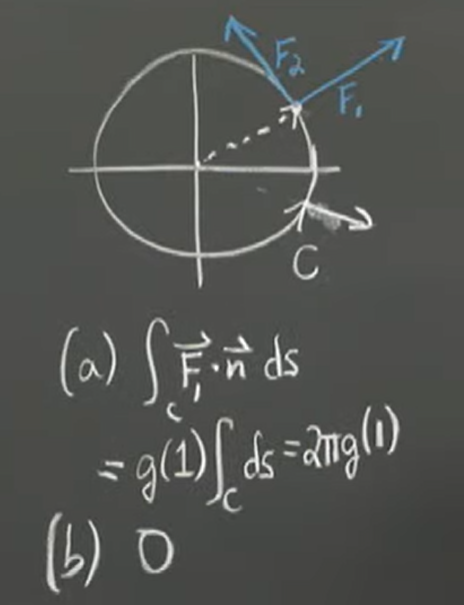 F₂
F₁
C
(a) ∫_C F⃗₁·n⃗ ds
= g(1)∫_C ds = 2πg(1)
(b) 0